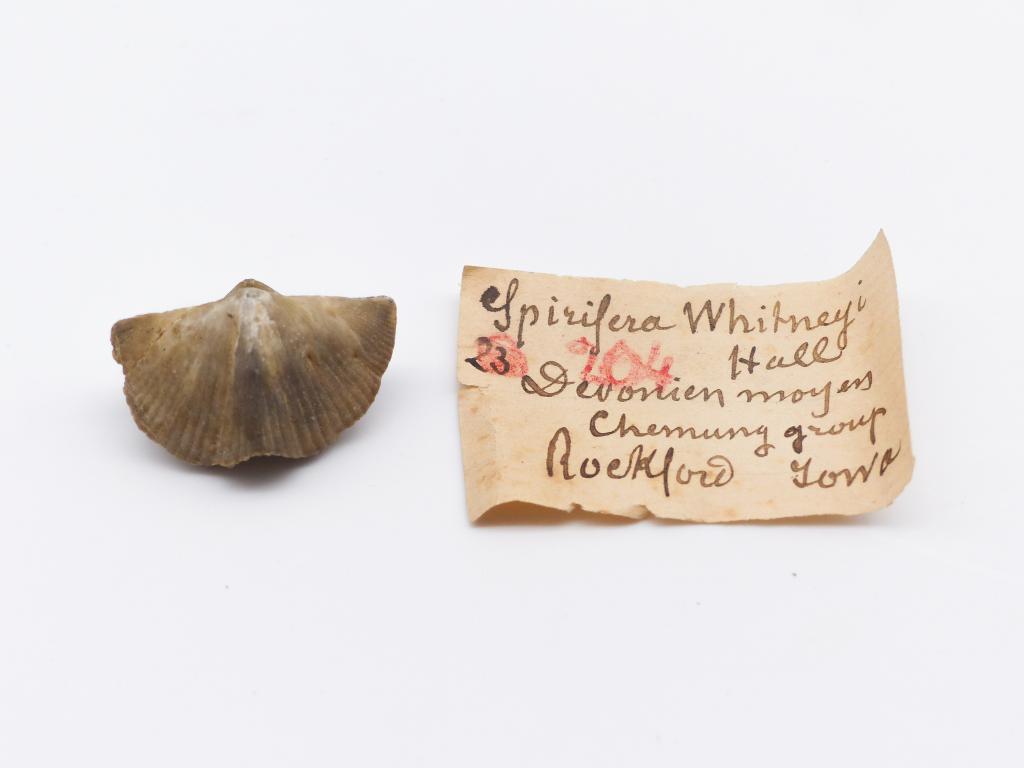 Spirifera Whitneyi
23 204 Hall
Devonien moyen
Chemung group
Rockford Iowa